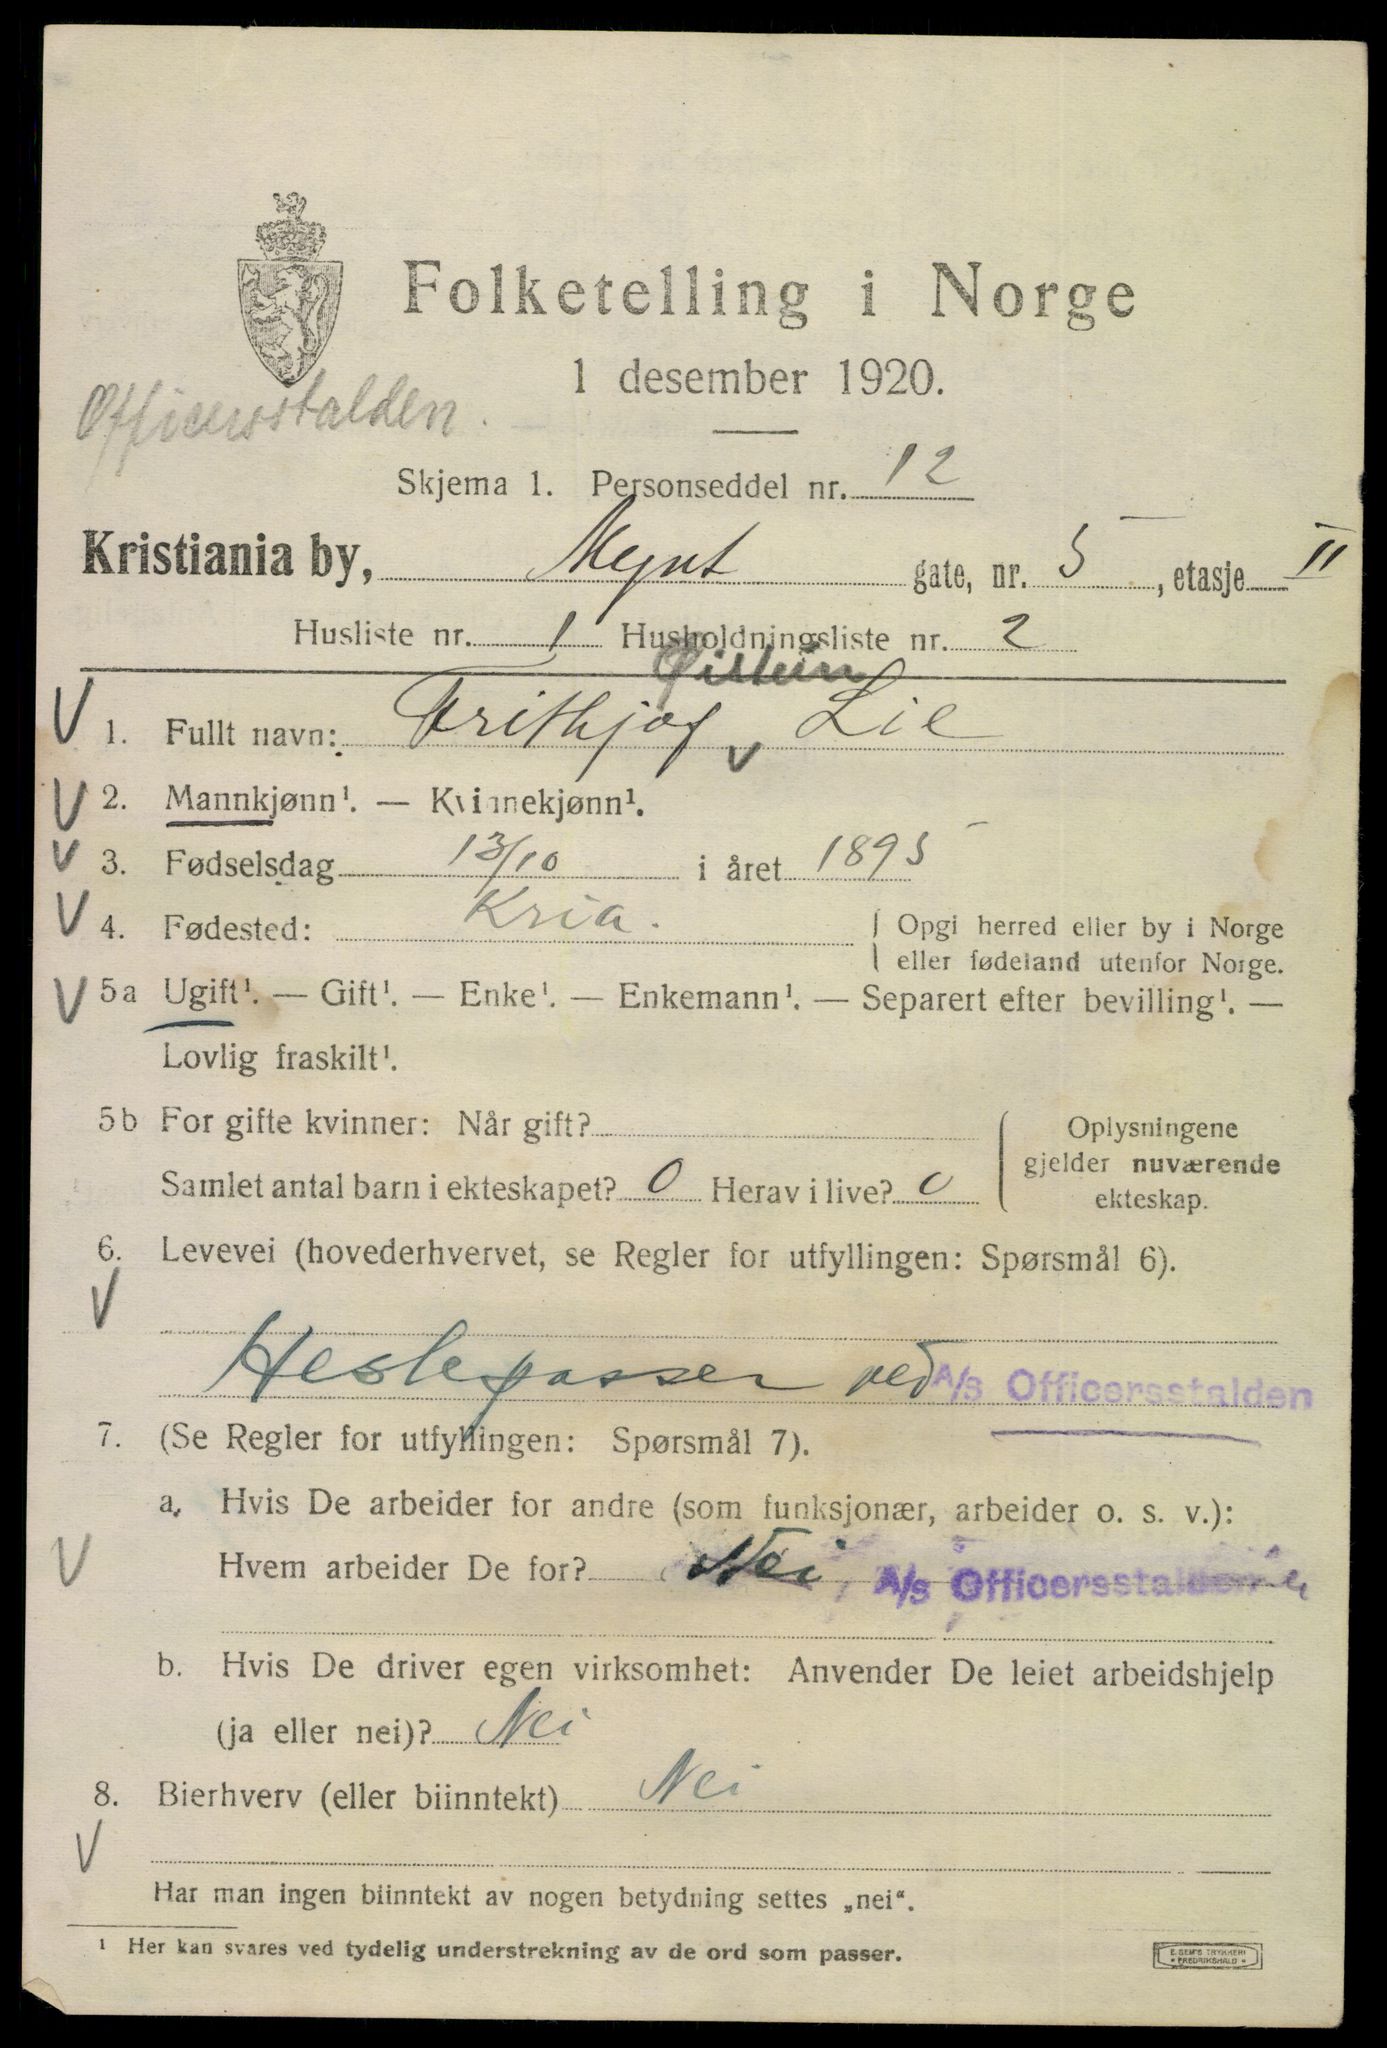 Folketelling i Norge
1 desember 1920.
Officersstalden.
Skjema 1. Personseddel nr. 12
Kristiania by, Mynt gate, nr. 5, etasje II
Husliste nr. 1 Husholdningsliste nr. 2
Øistein
1. Fullt navn: Frithjof Lie
2. Mannkjønn¹. — Kvinnekjønn¹.
3. Fødselsdag 13/10 i året 1895
4. Fødested: Kria. Opgi herred eller by i Norge
eller fødeland utenfor Norge.
5a Ugift¹. — Gift¹. — Enke¹. — Enkemann¹. — Separert efter bevilling¹. —
Lovlig fraskilt¹.
5b For gifte kvinner: Når gift? Oplysningene
gjelder nuværende
Samlet antal barn i ekteskapet? 0 Herav i live? 0 ekteskap.
6. Levevei (hovederhvervet, se Regler for utfyllingen: Spørsmål 6).
Hestepasser ved A/S Officersstalden
7. (Se Regler for utfyllingen: Spørsmål 7).
a. Hvis De arbeider for andre (som funksjonær, arbeider o. s. v.):
Hvem arbeider De for? Nei A/S Officersstalden
b. Hvis De driver egen virksomhet: Anvender De leiet arbeidshjelp
(ja eller nei)? Nei
8. Bierhverv (eller biinntekt) Nei
Har man ingen biinntekt av nogen betydning settes „nei“.
¹ Her kan svares ved tydelig understrekning av de ord som passer.
E. SEM'S TRYKKERI
* FREDRIKSHALD *